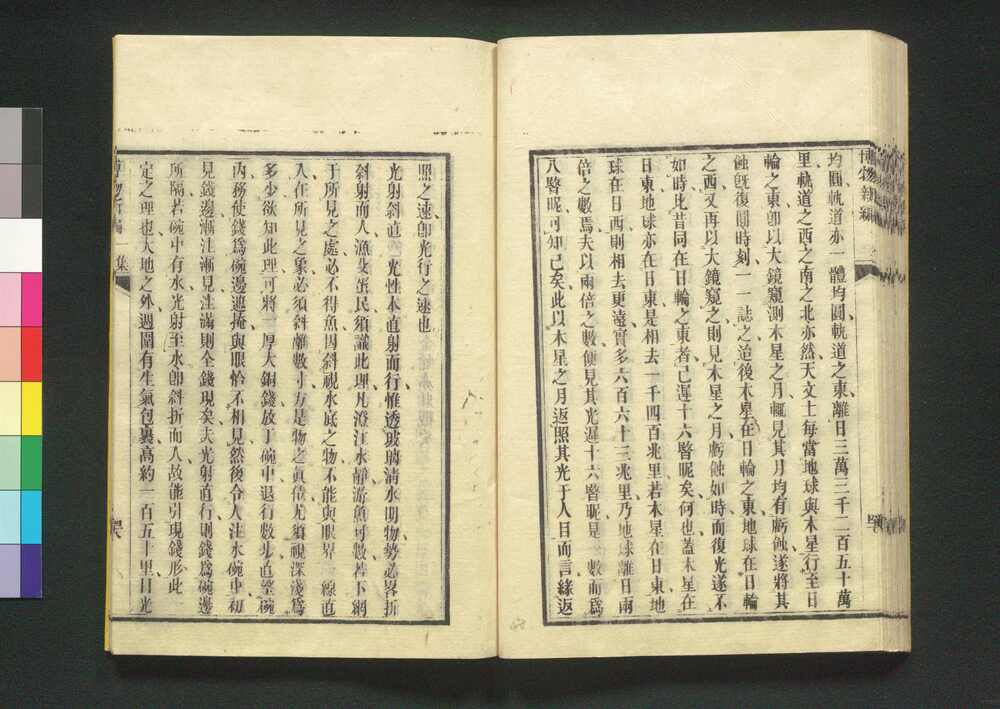 博物新編
均圓軌道亦一體均圓軌道之東離日三萬三千二百五十萬
里軌道之西之南之北亦然天文士每當地球與木星行至日
輪之東卽以大鏡窺測木星之月輒見其月均有虧蝕遂將其
蝕旣復圓時刻一一誌之迨後木星在日輪之東地球在日輪
之西又再以大鏡窺之則見木星之月虧蝕如時而復光遂不
如時比昔同在日輪之東者已遲十六瞥昵矣何也蓋木星在
日東地球亦在日東是相去一千四百兆里若木星在日東地
球在日西則相去更遠實多六百六十三兆里乃地球離日兩
倍之數焉夫以兩倍之數便見其光遲十六瞥昵是一數而爲
八瞥昵可知已矣此以木星之月返照其光于人目而言緣返
照之速卽光行之速也
光射斜直 光性本直射而行惟透玻璃淸水明物勢必畧折
斜射而人漁及蛋民須識此理凡澄江水靜游魚可數若下網
于所見之處必不得魚因斜視水底之物不能與眼界一線直
入在所見之象必須斜離數寸方是物之眞位尤須視深淺爲
多少欲知此理可將一厚大銅錢放于碗中退行數步直望碗
內務使錢爲碗邊遮掩與眼恰不相見然後令人注水碗中初
見錢邊漸注漸見注滿則全錢現矣夫光射直行則錢爲碗邊
所隔若碗中有水光射至水卽斜折而人故能引現錢形此一
定之理也大地之外週圍有生氣包裹高約一百五十里日光
博物新編 一集